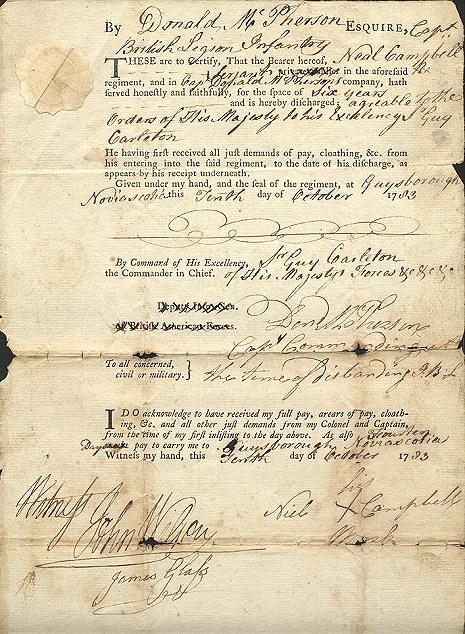 By Donald Mc Pherson ESQUIRE, Capt
British Legion Infantry
THESE are to Certify, That the Bearer hereof, Neil Campbell
Serjant in the aforesaid
regiment, and in Cap Donald McPhersons company, hath
served honestly and faithfully, for the space of Six years
and is hereby discharged; agreable to the
Orders of His Majesty & his Excelency Sr Guy
Carleton
He having first received all just demands of pay, cloathing, &c. from
his entering into the said regiment, to the date of his discharge, as
appears by his receipt underneath.
Given under my hand, and the seal of the regiment, at Guysborough
Novia scotia this Tenth day of October 1783
By Command of His Excellency, Sir Guy Carleton
the Commander in Chief. of His Majestys Forces &c &c &c
Deputy Inspr. Gen.
of British American Forces.
Don McPherson
Capt Commanding at
To all concerned,
civil or military. } the time of disbanding
I DO acknowledge to have received my full pay, arears of pay, cloath-
ing, &c. and all other just demands from my Colonel and Captain,
from the time of my first inlisting to the day above. As also fourteen
Days pay to carry me to Guysborough Noviascotia
Witness my hand, this Tenth day of October 1783
his
Witness Niel X Campbell
Mark
John
James Glass